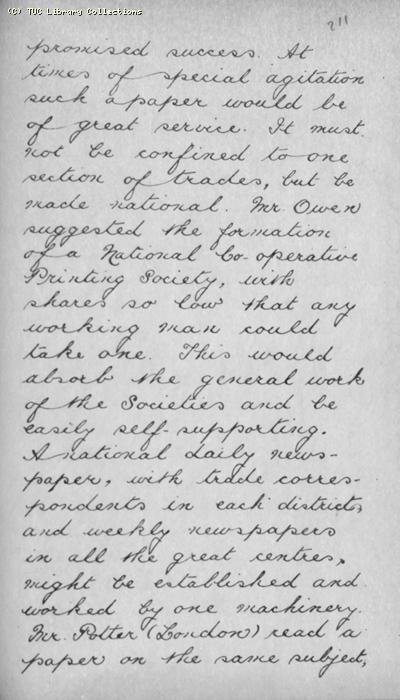 (C) TUC Library Collections
211
promised success. At
times of special agitation
such a paper would be
of great service. It must
not be confined to one
section of trades, but be
made national. Mr. Owen
suggested the formation
of a National Co-operative
Printing Society, with
shares so low that any
working man could
take one. This would
absorb the general work
of the Societies and be
easily self-supporting.
A national daily news-
paper, with trade corres-
pondents in each district,
and weekly newspapers
in all the great centres,
might be established and
worked by one machinery.
Mr. Potter (London) read a
paper on the same subject,